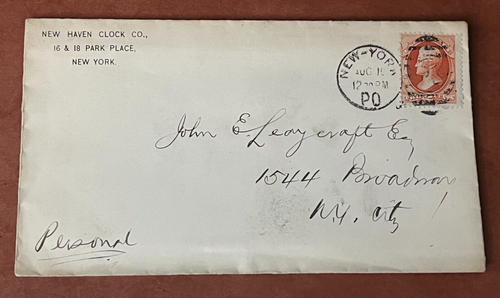 NEW HAVEN CLOCK CO.,
16 & 18 PARK PLACE,
NEW YORK.
NEW-YORK
AUG 15
12 30 PM
PO
John E. Leaycraft Esq
1544 Broadway
N.Y. City
Personal